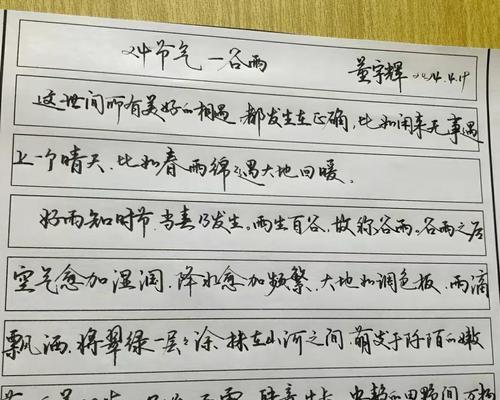 24节气－谷雨 董宇辉 2024.4.19
这世间所有美好的相遇,都发生在正确,比如闲来无事遇
上一个晴天,比如春雨绵绵遇大地回暖。
好雨知时节,当春乃发生。雨生百谷,故称谷雨。谷雨之后
空气愈加湿润,降水愈加频繁,大地如调色板,雨滴
飘洒,将翠绿一层々涂抹在山河之间,萌发于阡陌的嫩
的田野间